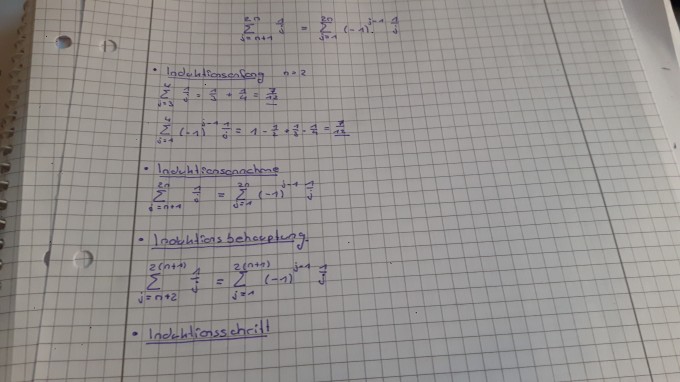 ∑_{j=n+1}^{2n} 1/j = ∑_{j=1}^{2n} (-1)^{j-1} 1/j
• Induktionsanfang n=2
∑_{j=3}^{4} 1/j = 1/3 + 1/4 = 7/12
∑_{j=1}^{4} (-1)^{j-1} 1/j = 1 - 1/2 + 1/3 - 1/4 = 7/12
• Induktionsannahme
∑_{j=n+1}^{2n} 1/j = ∑_{j=1}^{2n} (-1)^{j-1} 1/j
• Induktionsbehauptung
∑_{j=n+2}^{2(n+1)} 1/j = ∑_{j=1}^{2(n+1)} (-1)^{j-1} 1/j
• Induktionsschritt